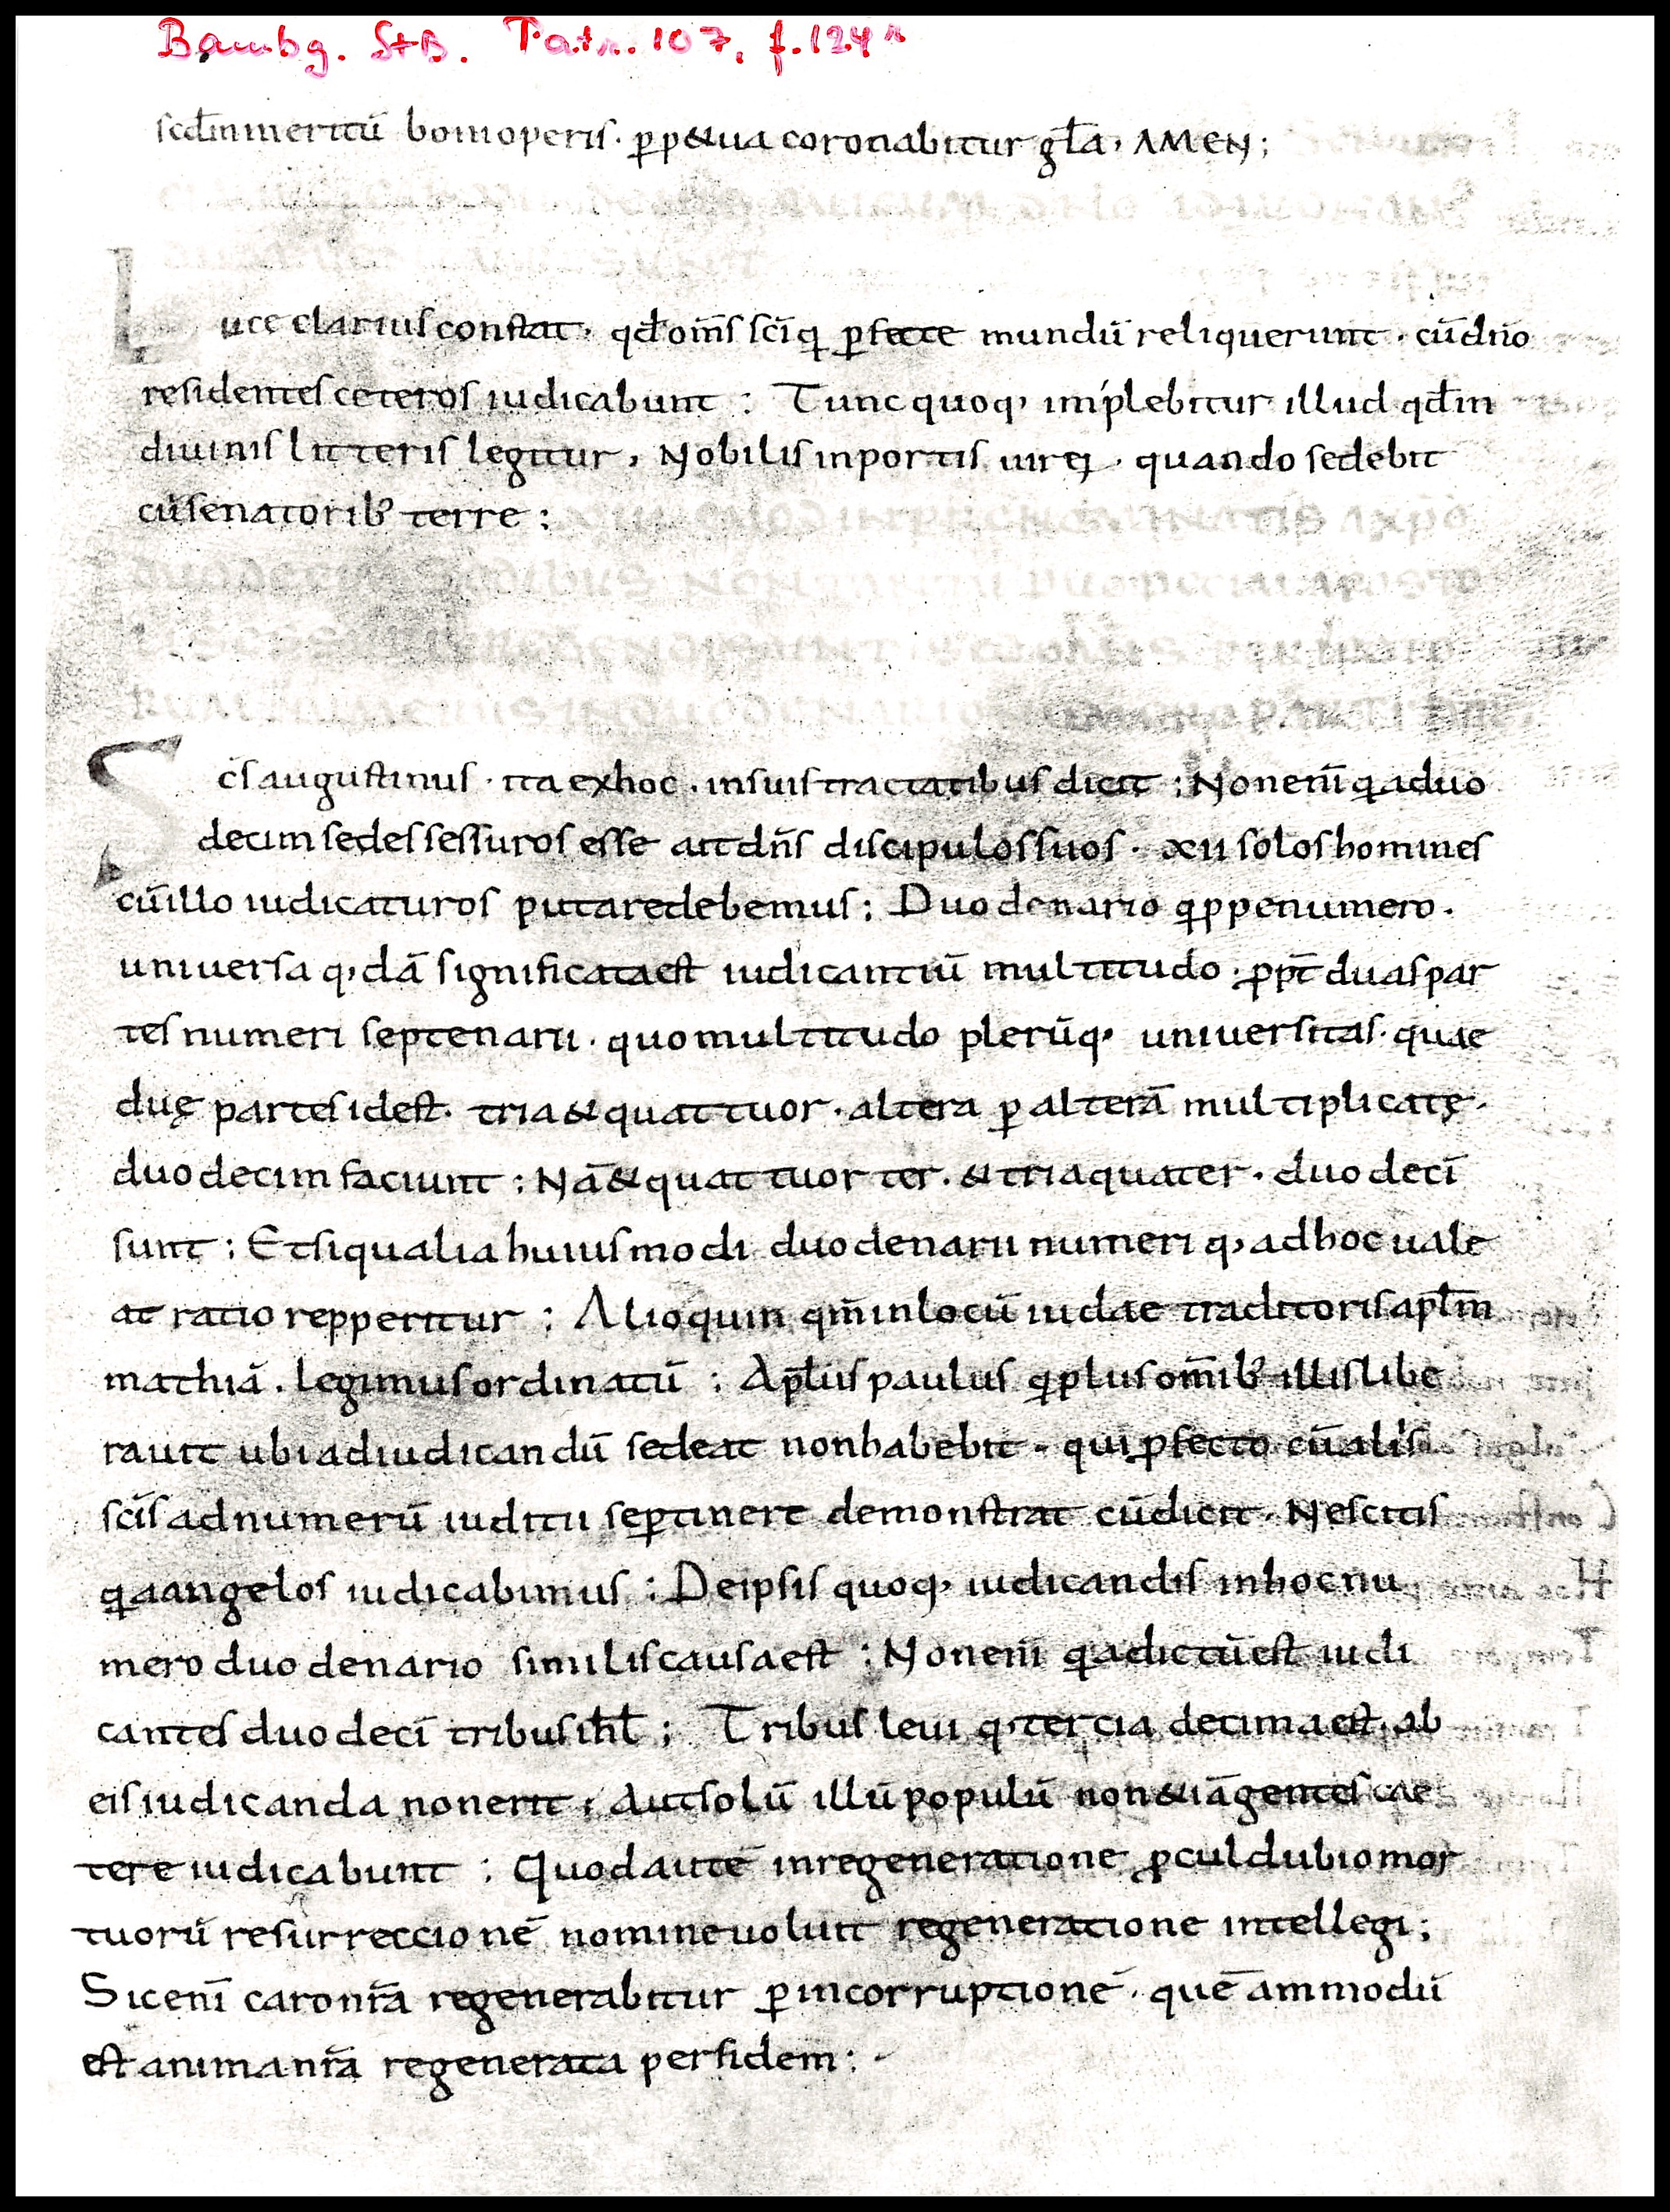 Bambg. StB. Patr. 107, f. 124r
scd̄m meritū boni operis · ꝑp&ua coronabitur gl̄a, AMEN;
Luce clarius constat · qđ om̄s sc̄i q̣ ꝑfecte mundū reliquerunt · cū dn̄o
residentes ceteros iudicabunt : Tunc quoq, implebitur illud qđ in
diuinis litteris legitur, Nobilis in portis uir ei · quando sedebit
cū senatorib; terre :
Sc̄s augustinus · ita ex hoc · in suis tractatibus dicit ; Non eni̅ qa duo
decim sedes sessuros esse ait dn̄s discipulos suos · xii solos homines
cū illo iudicaturos putare debemus ; Duodenario qppe numero ·
uniuersa q,dā significata est iudicantiū multitudo · ꝓpt̄ duas par
tes numeri septenarii · quo multitudo plerūq, uniuersitas · quae
duę partes id est · tria & quattuor · altera ꝑ alterā multiplicatę ·
duodecim faciunt ; Nā & quattuor ter · & tria quater · duodecī
sunt ; Et si qua alia huiusmodi duodenarii numeri q, ad hoc uale
at ratio repperitur ; Alioquin qm̄ in locū iudae traditoris apl̄m
mathiā · legimus ordinatū ; Apl̄us paulus q plus om̄ib; illis libe
rauit ubi ad iudicandū sedeat non habebit · qui ꝓfecto cū aliis
sc̄is ad numerū iuditii se ꝑtinere demonstrat cū dicit · Nescitis
qa angelos iudicabimus ; De ipsis quoq, iudicandis in hoc nu
mero duodenario similis causa est ; Non eni̅ qa dictū est iudi
cantes duodecī tribus ihl̄ ; Tribus leui q, tercia decima est, ab
eis iudicanda non erit ; Aut solū illū populū non &iā gentes cae
tere iudicabunt ; Quod autē in regeneratione ꝓcul dubio mor
tuorū resurreccionē nomine uoluit regeneratione intellegi ;
Sic eni̅ caro nr̄a regenerabitur ꝑ incorruptionē · quē ammodū
est anima nr̄a regenerata per fidem ;